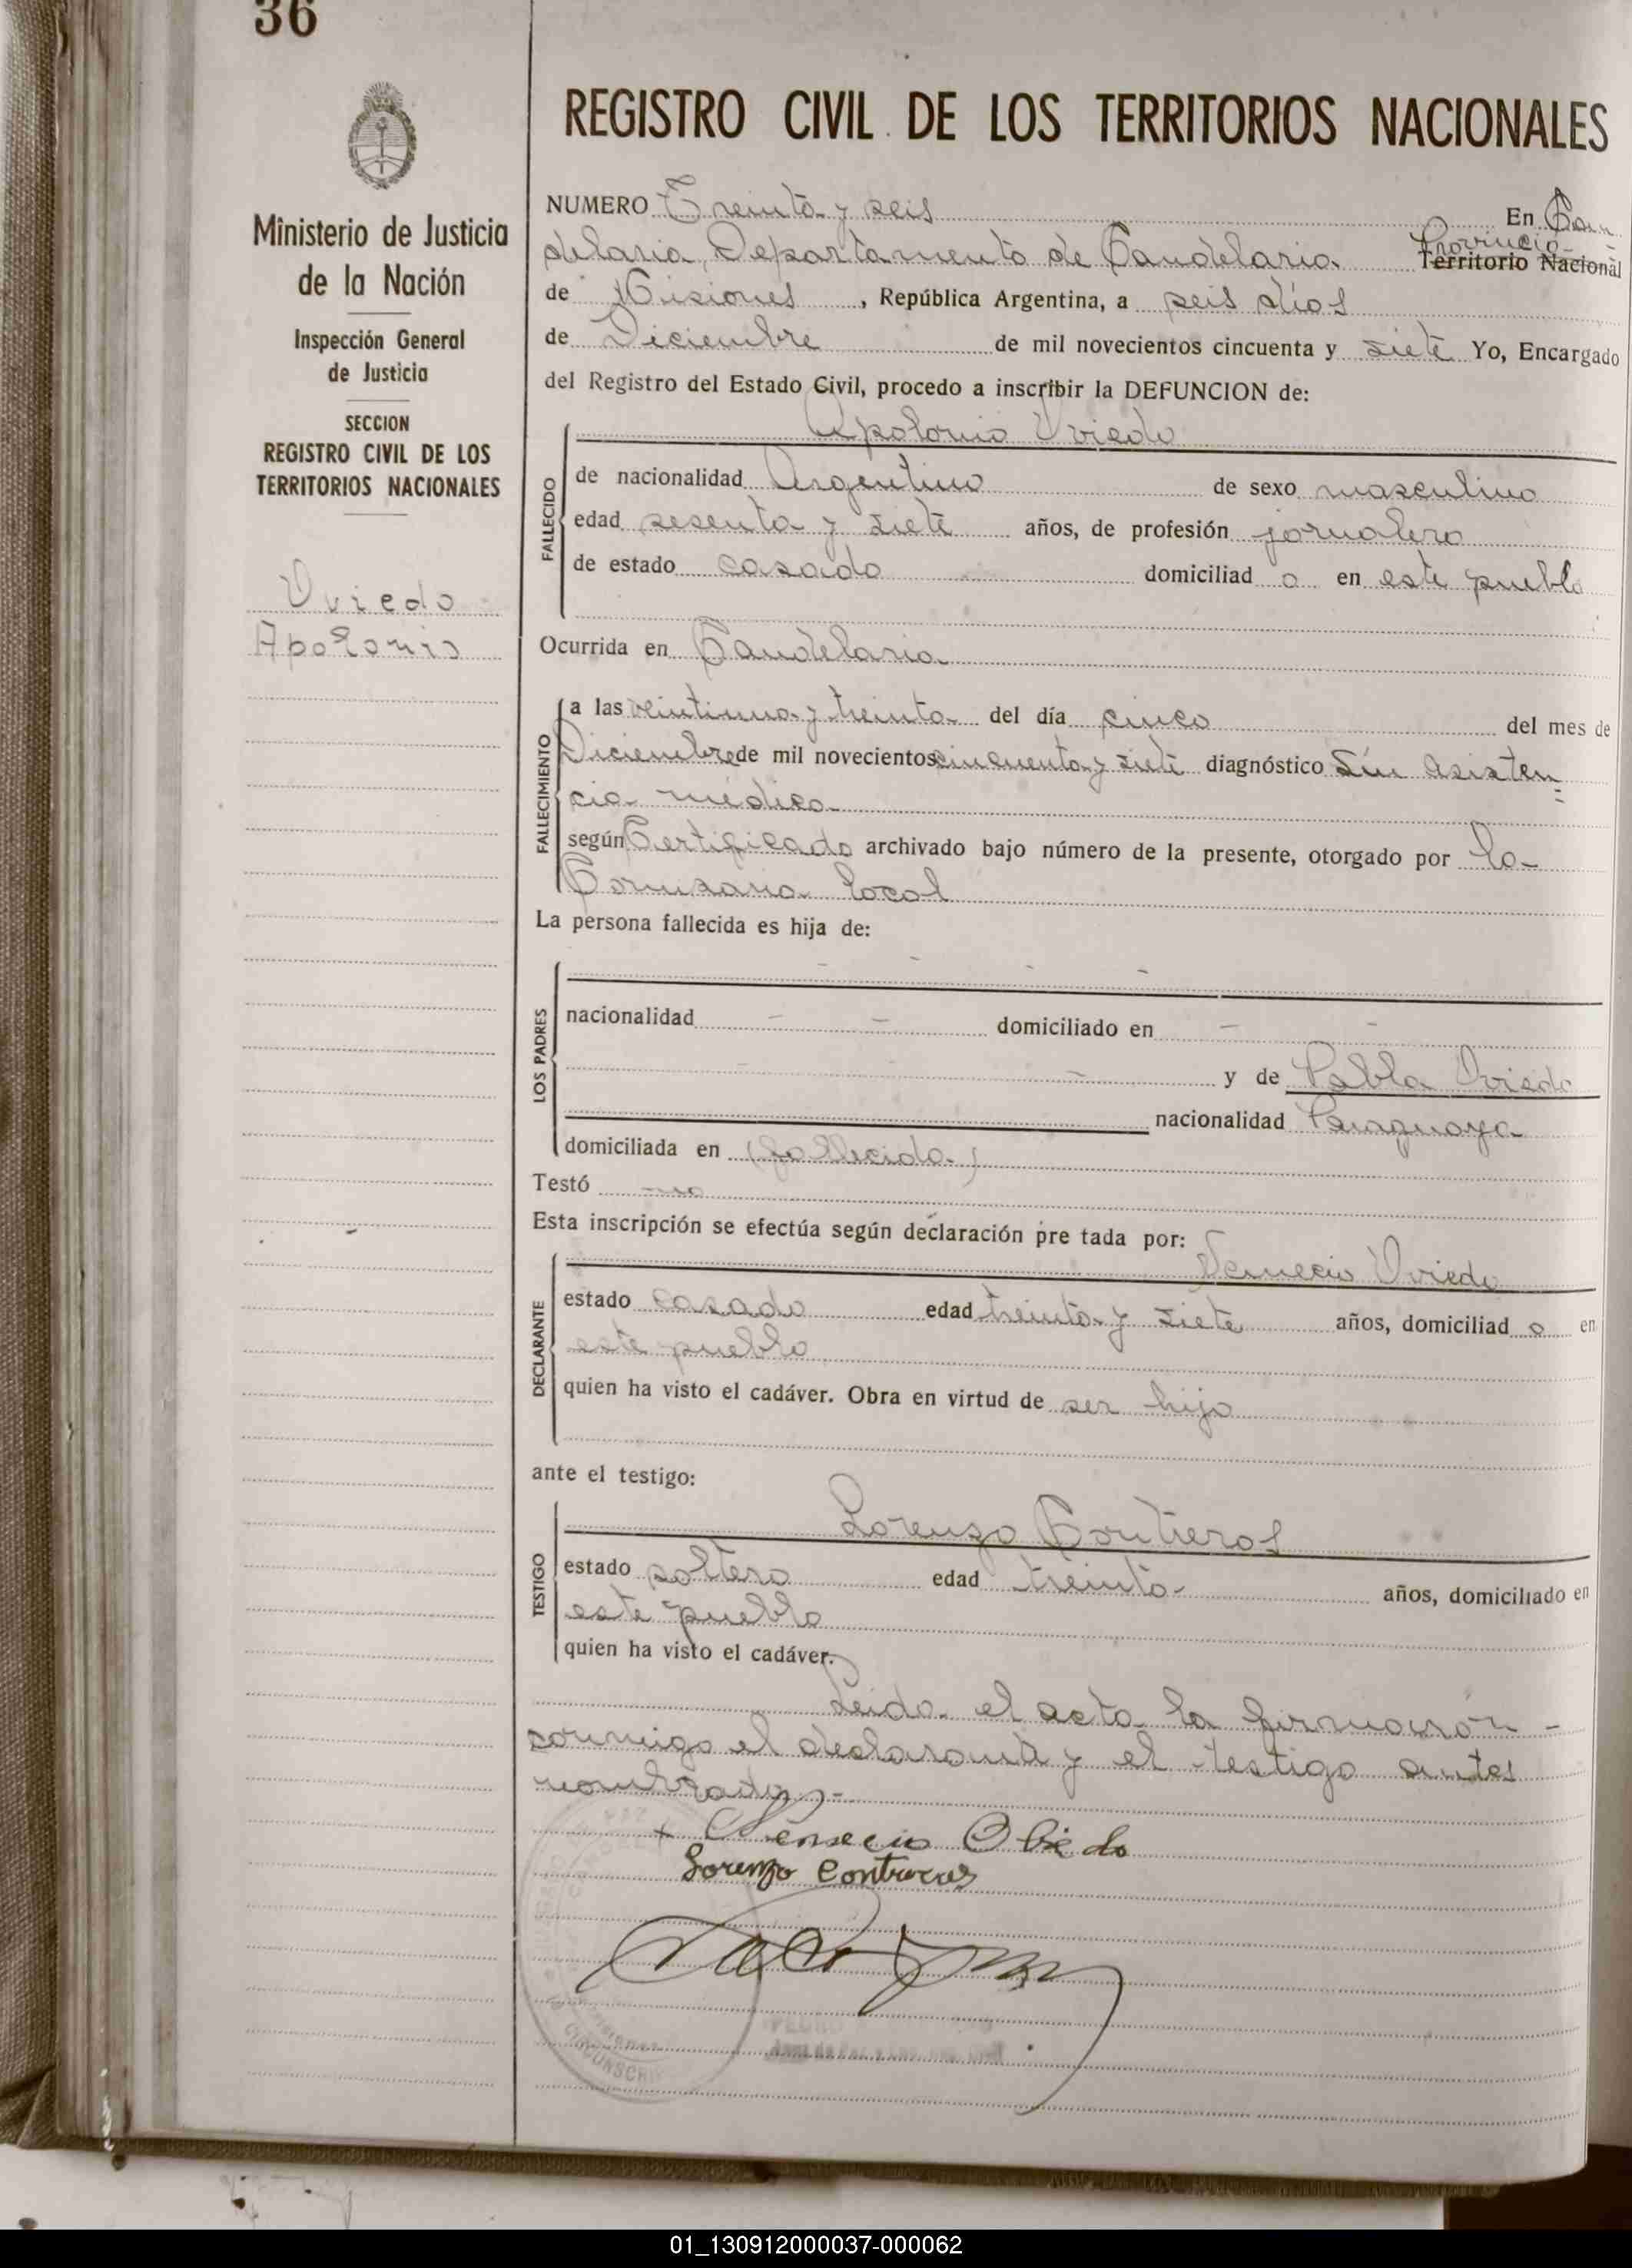 36
Ministerio de Justicia
de la Nación
Inspección General
de Justicia
SECCION
REGISTRO CIVIL DE LOS
TERRITORIOS NACIONALES
Oviedo
Apolonio
REGISTRO CIVIL DE LOS TERRITORIOS NACIONALES
NUMERO Treinta y seis En Can
delaria, Departamento de Candelaria. Provincia Territorio Nacional
de Misiones, República Argentina, a seis días
de Diciembre de mil novecientos cincuenta y siete Yo, Encargado
del Registro del Estado Civil, procedo a inscribir la DEFUNCION de:
Apolonio Oviedo
FALLECIDO
de nacionalidad Argentino de sexo masculino
edad sesenta y siete años, de profesión jornalero
de estado casado domiciliad o en este pueblo
Ocurrida en Candelaria
FALLECIMIENTO
a las veintiuna y treinta del día cinco del mes de
Diciembre de mil novecientos cincuenta y siete diagnóstico Sin asisten=
cia médica
según Certificado archivado bajo número de la presente, otorgado por la
Comisaria local
La persona fallecida es hija de:
LOS PADRES
nacionalidad - - domiciliado en - -
- - y de Pabla Oviedo
nacionalidad Paraguaya
domiciliada en (fallecida)
Testó no
Esta inscripción se efectúa según declaración pre tada por:
Oviedo
DECLARANTE
estado casado edad treinta y siete años, domiciliad o en
este pueblo
quien ha visto el cadáver. Obra en virtud de ser hijo
ante el testigo:
Lorenzo Contreras
TESTIGO
estado soltero edad treinta años, domiciliado en
este pueblo
quien ha visto el cadáver.
Leida el acta la firmarón -
conmigo el declarante y el testigo antes
nombrados.-
+ Obiedo
Lorenzo Contreras
PEDRO
CIRCUNSCRI
01_130912000037-000062